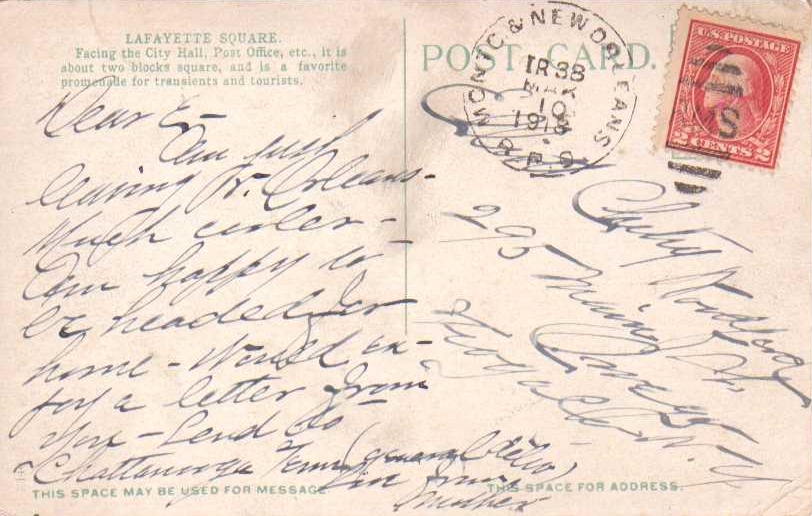 LAFAYETTE SQUARE.
Facing the City Hall, Post Office, etc., it is
about two blocks square, and is a favorite
promenade for transients and tourists.
POST CARD.
MONTG & NEW ORLEANS
TR 38
MAR
10
R.P.O.
U.S. POSTAGE
2 CENTS 2
Dear E-
Am just
leaving N. Orleans-
Much cooler-
Am happy to
be headed for
home - Would en-
joy a letter from
you - Send to
Chattanooga Tenn (general
Mother
Woodford
295 Main St.
N.Y.
THIS SPACE MAY BE USED FOR MESSAGE.
THIS SPACE FOR ADDRESS.